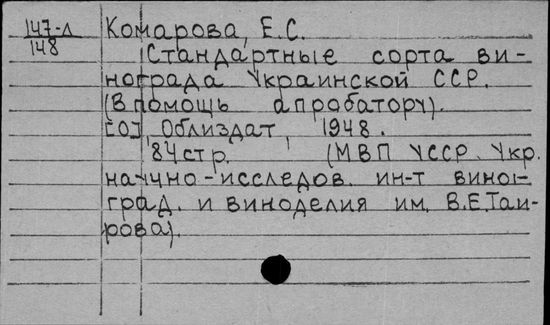 147-Л Комарова, Е.С.
148
Стандартные сорта ви-
нограда Украинской ССР.
(В помощь апробатору).
[О], Облиздат, 1948.
84стр. (МВП УССР. Укр.
научно-исследов. ин-т вино-
град. и виноделия им. В.Е.Таи-
рова).